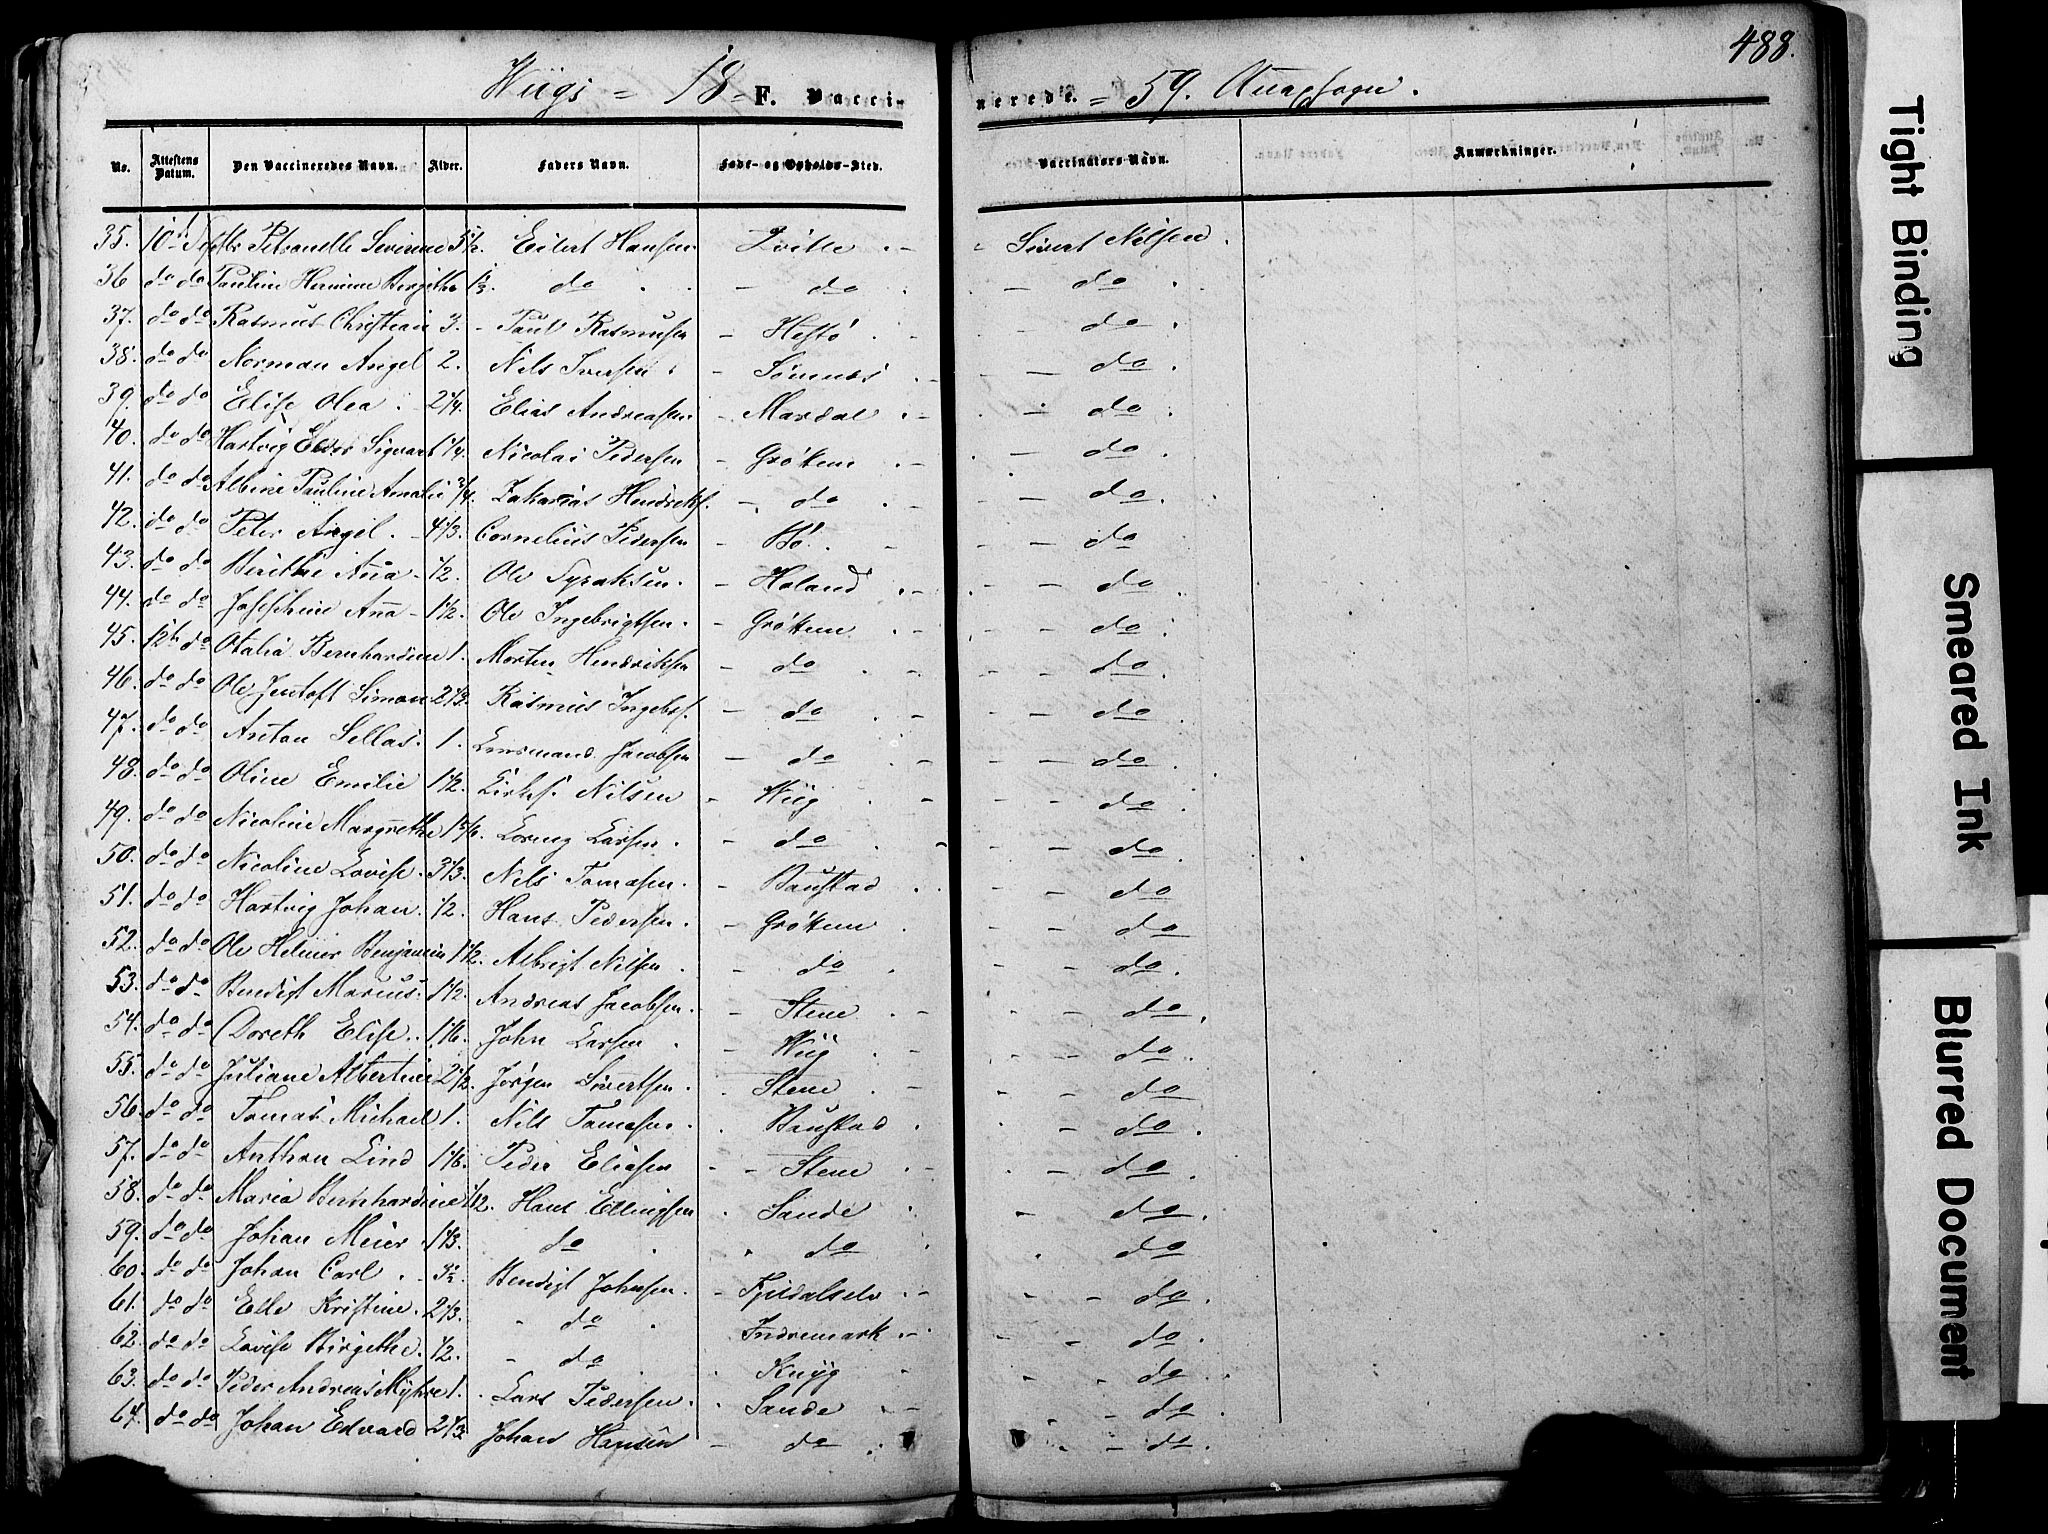 488.
Wiigs = 18 = F. Vacci- nerede. = 59. Annexsogn.
No. Attestens Datum. Den Vaccineredes Navn. Alder. Faders Navn. Føde- og Opholds-Sted. Vaccinators Navn. Anmærkninger.
35. 10de Petranelle Severine 5 1/2. Eilert Hansen Hville - Sivert Nilsen.
36 do do Pauline Hermine Birgithe 1/3. do - do - do.
37. do do Rasmus Christian 3. Paul Rasmusen - Hestø - do.
38. do do Norman Angel 2. Nils Iversen - Sønnes - do.
39. do do Elise Olea. 2 1/4. Elias Andreasen - Mardal - do
40. do do Hartvig Sigvart 1 1/4. Nicolai Pedersen - Grøttem - do
41. do do Albine Pauline Amalie 3/4. Zakarias Hendriks. - do - do.
42. do do Peter Angel. 4 1/3. Cornelius Pedersen - Bø. - do
43. do do Berithe Ana - 1/2. Ole Syraksen. - Haland - do
44. do do Josephine Ana - 1 1/2. Ole Ingebrigtsen. - Grøttem - do
45. 12th do Otalia Bernhardine 1. Morten Hendriksen - do - do
46. do do Ole Jentoft Simon 2 1/3. Rasmus Ingebr. - do - do.
47. do do Anton Sellas. 1. Jacobsen - do - do.
48. do do Oline Emilie 1 1/2. Nilsen - Wiig - do
49. do do Nicoline Margrethe 1 5/6. Loreng Larsen. - do - do.
50. do do Nicoline Lovise. 3 1/3. Nils Tomasen. - Baustad - do
51. do do Hartvig Johan. 1/2. Hans Pedersen. - Grøttem - do
52. do do Ole Helmer Benjamin 1 1/2. Albrigt Nilsen. - do - do.
53. do do Bendigt Marius. 1 1/2. Andreas Jacobsen. - Stene - do.
54. do do Doreth Elise. 1 1/6. John Larsen. - Wiig - do.
55. do do Juliane Albertine 2 1/2. Jørgen Sivertsen. - Stene - do
56. do do Tomas Michael 1. Nils Tomasen. Baustad - do.
57. do do Anthon Lind 1 1/6. Peder Eliasen - Stene - do
58. do do Maria Bernhardine 1/12. Hans Ellingsen Sande - do.
59. do do Johan Meier. 1 1/3. do do do
60. do do Johan Carl. 3 1/2. Bendigt Johnsen. - Fjeldalselv - do.
61. do do Elle Kristine. 2 1/3. - do Indremark - do
62. do do Lovise Birgethe. 1/2. - do Knyg - do
63. do do Peder Andreas Myhre 1. Lars Pedersen. Sande - do
64. do do Johan Edvard 2 1/3 Johan Hansen - do - do.
Tight Binding
Smeared Ink
Blurred Document